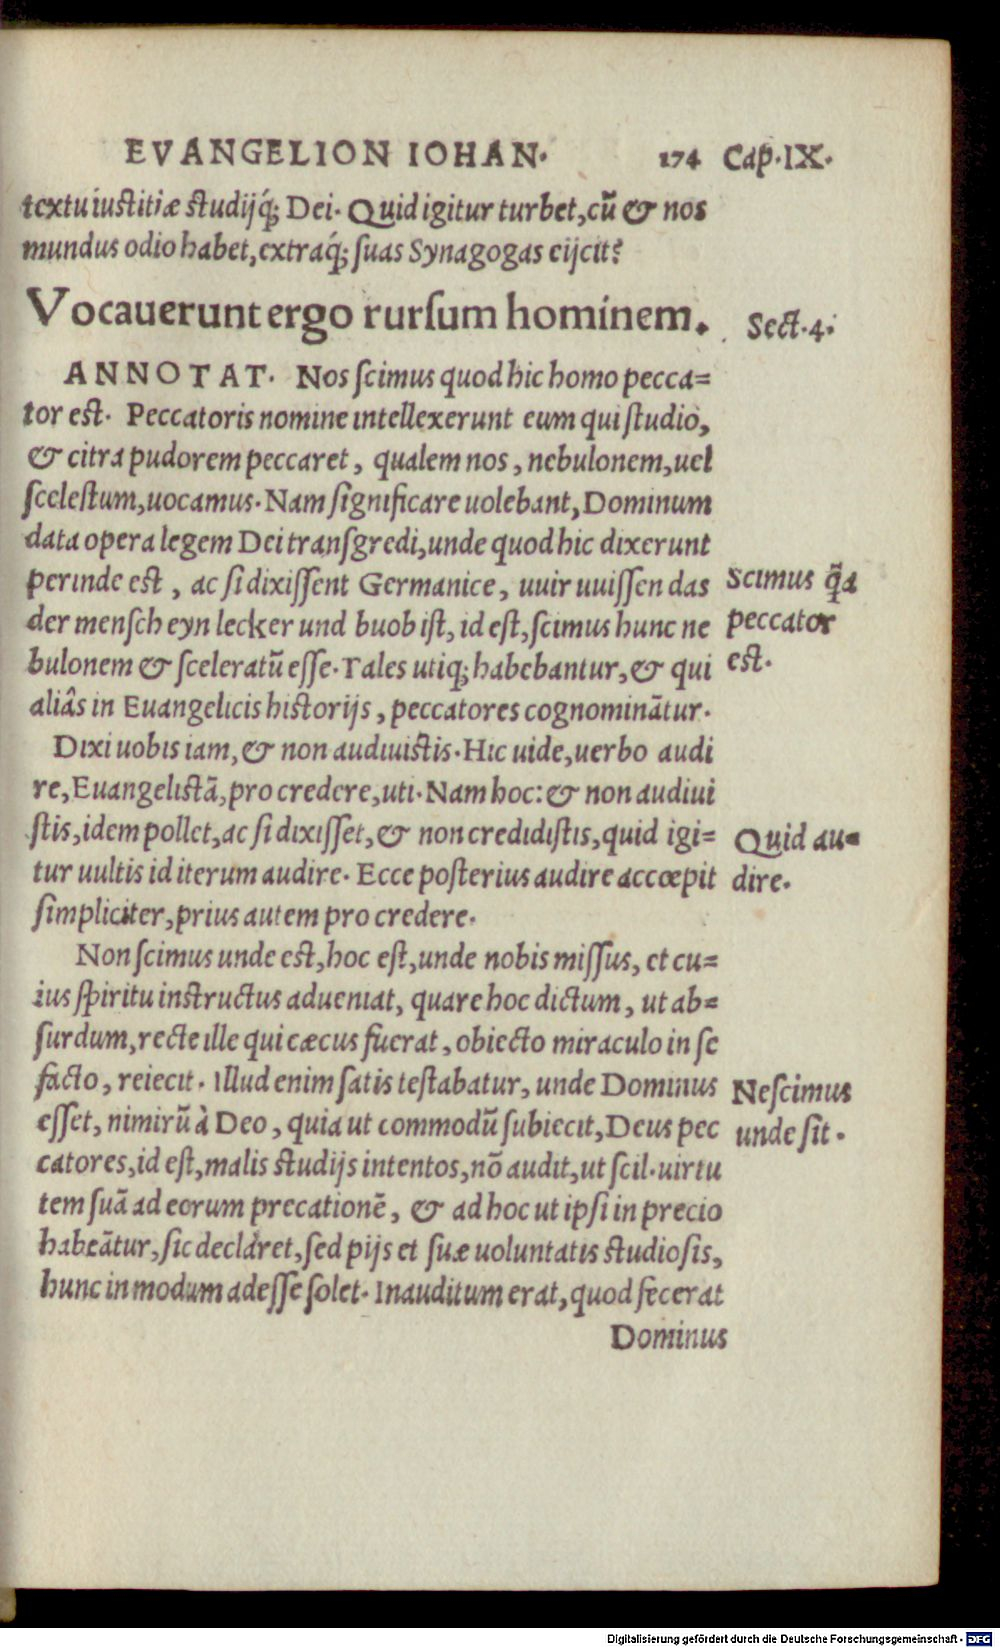 EVANGELION IOHAN. 174 Cap. IX.
textu iustitiæ studijq́; Dei. Quid igitur turbet, cũ & nos
mundus odio habet, extraq́; ſuas Synagogas eijcit?
Vocauerunt ergo rurſum hominem.
Sect. 4.
ANNOTAT. Nos ſcimus quod hic homo pecca=
tor est. Peccatoris nomine intellexerunt eum qui ſtudio,
& citra pudorem peccaret, qualem nos, nebulonem, uel
ſceleſtum, uocamus. Nam ſignificare uolebant, Dominum
data opera legem Dei tranſgredi, unde quod hic dixerunt
perinde est, ac ſi dixiſſent Germanice, uuir uuiſſen das
der menſch eyn lecker und buob iſt, id eſt, ſcimus hunc ne
bulonem & ſceleratũ eſſe. Tales utiq; habebantur, & qui
aliâs in Euangelicis historijs, peccatores cognominãtur.
Scimus q̃a
peccator
est.
Dixi uobis iam, & non audiuistis. Hic uide, uerbo audi
re, Euangelistã, pro credere, uti. Nam hoc: & non audiui
ſtis, idem pollet, ac ſi dixiſſet, & non credidiſtis, quid igi=
tur uultis id iterum audire. Ecce poſterius audire accœpit
ſimpliciter, prius autem pro credere.
Quid au=
dire.
Non ſcimus unde est, hoc eſt, unde nobis miſſus, et cu=
ius ſpiritu instructus adueniat, quare hoc dictum, ut ab=
ſurdum, recte ille qui cæcus fuerat, obiecto miraculo in ſe
facto, reiecit. Illud enim ſatis teſtabatur, unde Dominus
eſſet, nimirũ à Deo, quia ut commodũ ſubiecit, Deus pec
catores, id eſt, malis studijs intentos, nõ audit, ut ſcil. uirtu
tem ſuã ad eorum precationẽ, & ad hoc ut ipſi in precio
habeãtur, ſic declaret, ſed pijs et ſuæ uoluntatis studioſis,
hunc in modum adeſſe ſolet. Inauditum erat, quod fecerat
Neſcimus
unde ſit.
Dominus
Digitalisierung gefördert durch die Deutsche Forschungsgemeinschaft - DFG